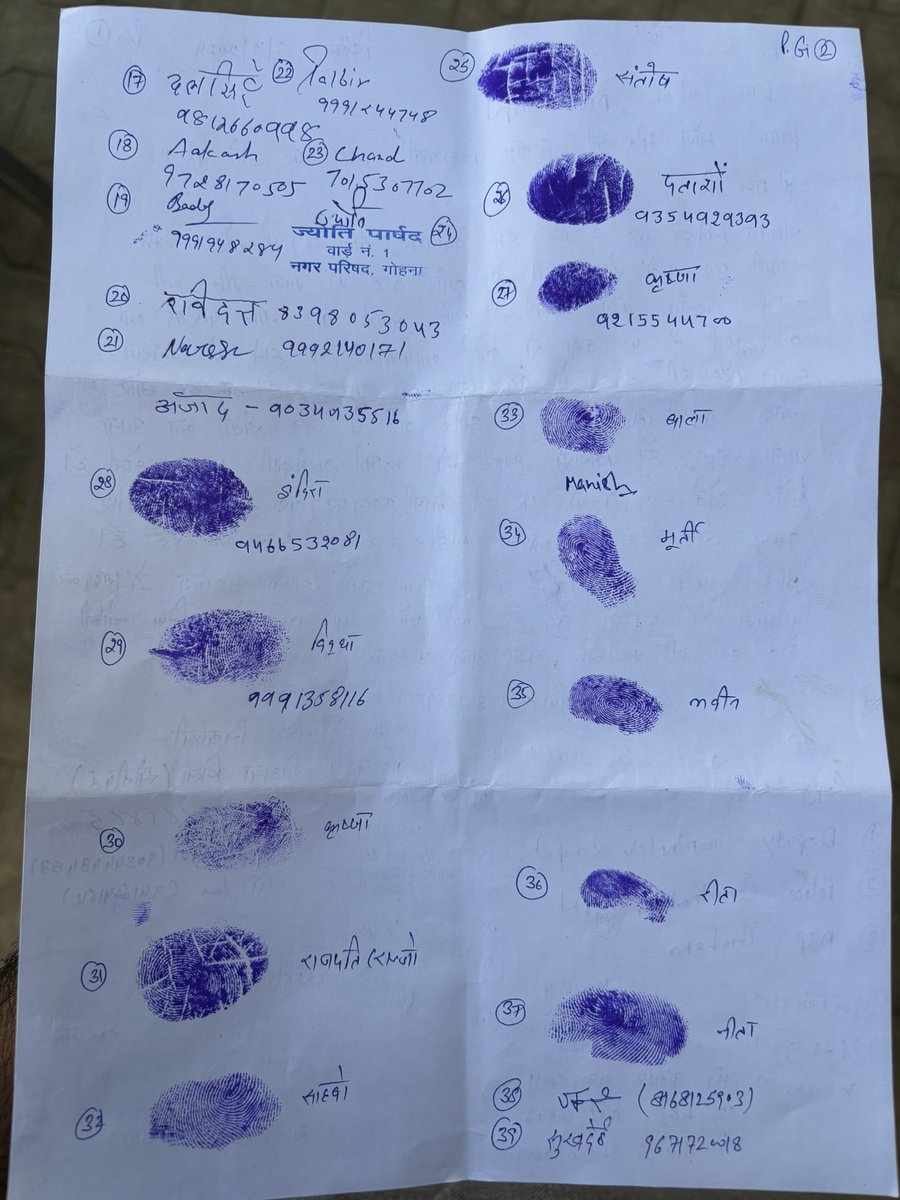 P.G (2)
(17)
(22) Balbir
9812660998
9991244748
(18) Aakash
(23) Chand
9728170505
7015307702
(19)
9991948284
ज्योति
ज्योति पार्षद (24)
वार्ड नं. 1
नगर परिषद, गोहना
(20) रविदत्त 8398053043
(21) Naresh 9992140171
(25) संतोष
(26) पताशों
9354929393
(27) कृष्णा
9215544700
अजाद - 9034935516
(28) इंदिरा
9466532081
(29) विद्या
9991358116
(30) कृष्णा
(31) राजपति
(32)
(33) बाला
Manish
(34) मूर्ती
(35) नवीन
(36) रीता
(37) नीता
(38)
(39) सुखदेई